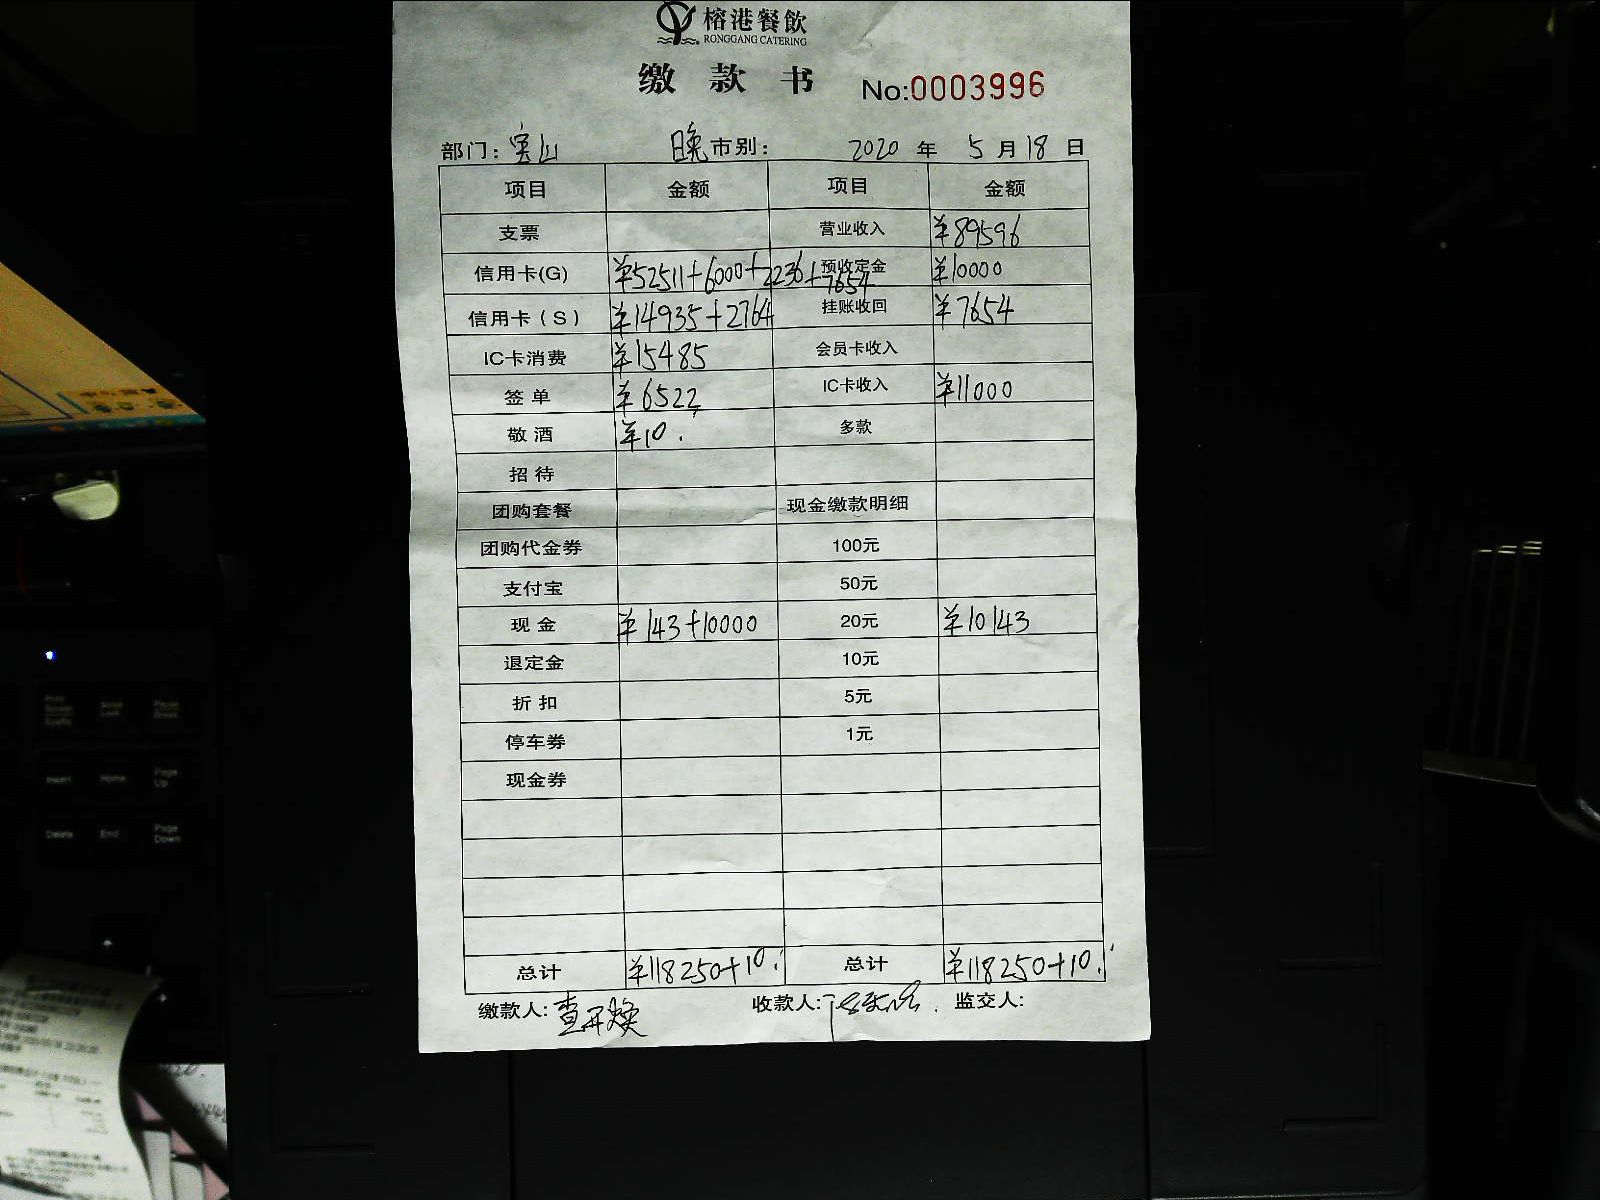 榕港餐飲
RONGGANG CATERING
缴 款 书 No:0003996
部门: 宝山 晚市别: 2020 年 5 月 18 日
项目 金额 项目 金额
支票 营业收入 ¥89596
信用卡(G) ¥52511+6000+2236+7654 预收定金 ¥10000
信用卡(S) ¥14935+2764 挂账收回 ¥7654
IC卡消费 ¥15485 会员卡收入
签 单 ¥6522 IC卡收入 ¥11000
敬 酒 ¥10. 多款
招 待
团购套餐 现金缴款明细
团购代金券 100元
支付宝 50元
现 金 ¥143+10000 20元 ¥10143
退定金 10元
折 扣 5元
停车券 1元
现金券
总计 ¥118250+10. 总计 ¥118250+10.
缴款人: 查开焕 收款人: 监交人:
Insert Home Page Up
Delete End Page Down